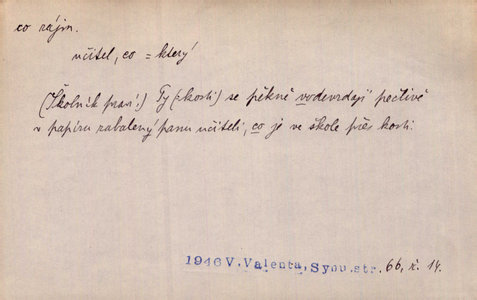 co zájm.
učitel, co = který
(Školník praví:) Ty (= kosti) se pěkně vodevzdají pečlivě
v papíru zabalený panu učiteli, co je ve škole přes kosti.
1946 V. Valenta, Synu. str. 66, ř. 14.